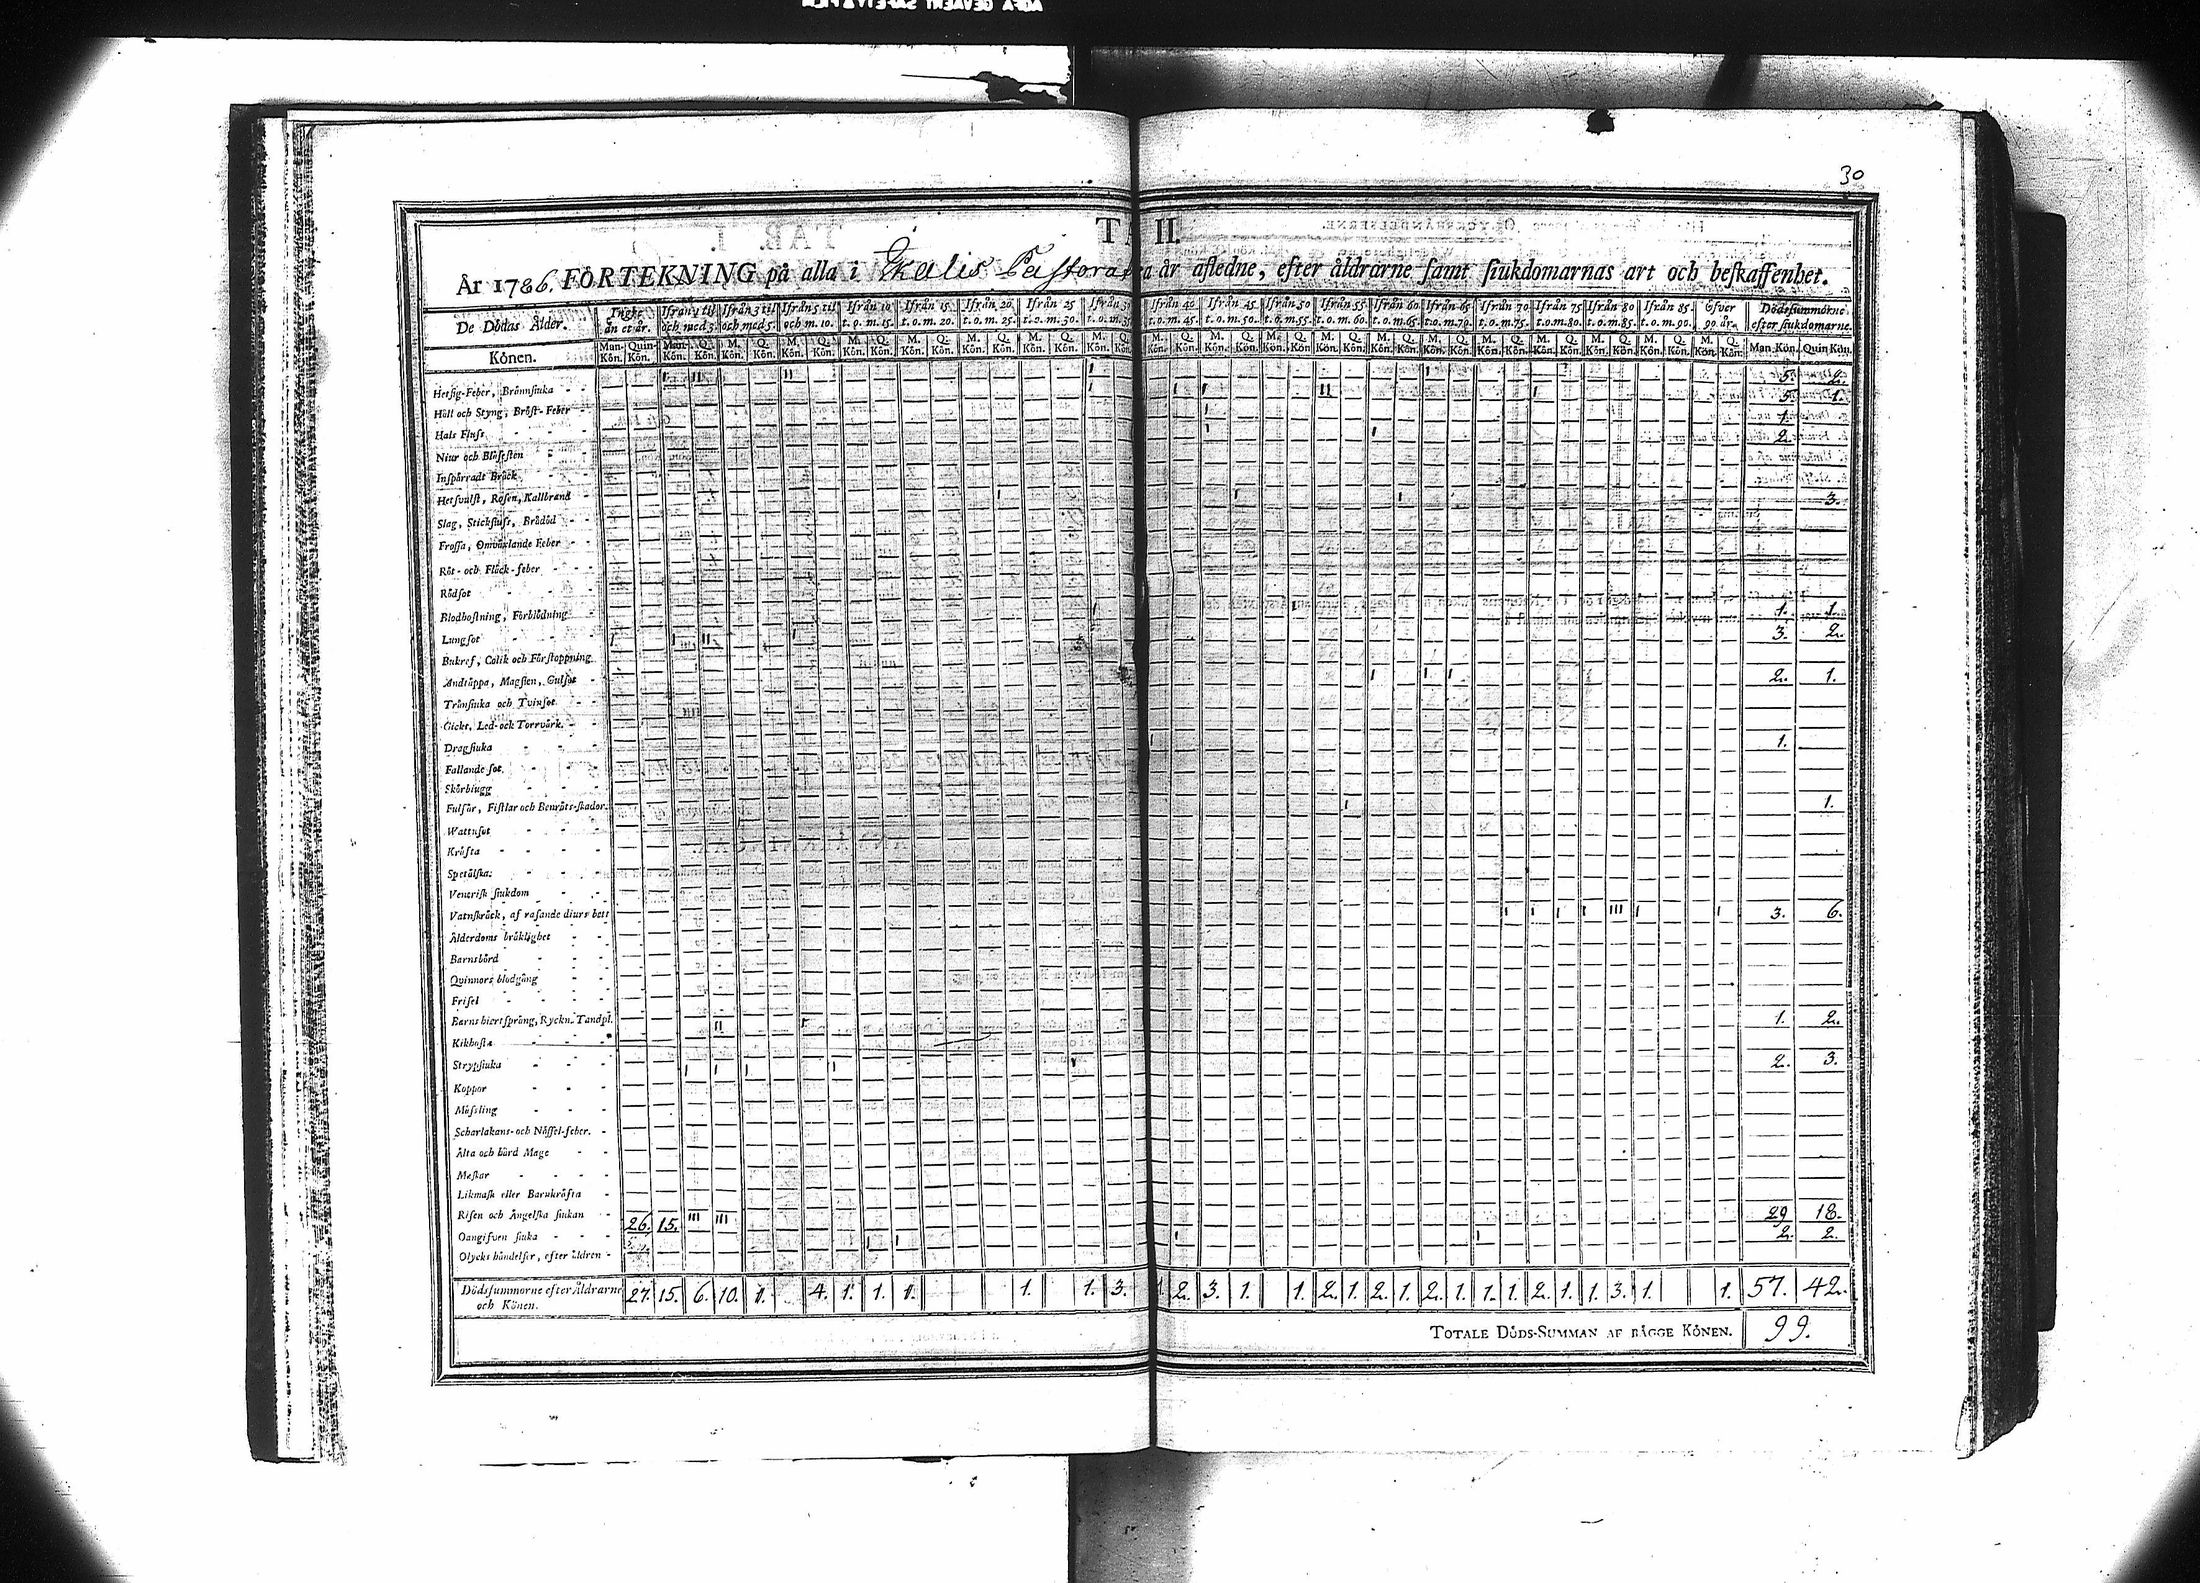 30
II.
År 1786. FÖRTEKNING på alla i Ikalis Pastorat år afledne, efter åldrarne samt siukdomarnas art och beskaffenhet.
De Dödas Ålder. Ifrån 1 til och med 3. Ifrån 3 til och med 5. Ifrån 5 til och m. 10. Ifrån 10 t. o. m. 15. Ifrån 15 t. o. m. 20. Ifrån 20 t. o. m. 25. Ifrån 25 t. o. m. 30. Ifrån 40 t. o. m. 45. Ifrån 45 t. o. m. 50. Ifrån 50 t. o. m. 55. Ifrån 55 t. o. m. 60. Ifrån 60 t. o. m. 65. Ifrån 65 t. o. m. 70. Ifrån 70 t. o. m. 75. Ifrån 75 t. o. m. 80. Ifrån 80 t. o. m. 85. Ifrån 85 t. o. m. 90. Öfver 90 år. Dödssummorne efter siukdomarne.
Könen. Man-Kön. Quin-Kön. Man-Kön. Q. Kön. M. Kön. Q. Kön. Man Kön. Quin Kön.
Hetsig-Feber, Brännsiuka 5. 2.
Håll och Styng, Bröst-Feber 5. 1.
Hals Fluss 1.
Niur och Blåsesten 2.
Inspärradt Bråck
Hetsvulst, Rosen, Kallbrand 3.
Slag, Stickfluss, Brådöd
Frossa, Omväxlande Feber
Röt- och Fläck-feber
Rödsot
Blodhostning, Förblödning 1. 1.
Lungsot 3. 2.
Bukref, Colik och Förstoppning
Andtäppa, Magsten, Gulsot 2. 1.
Trånsiuka och Tvinsot
Gickt, Led- och Torrvärk.
Dragsiuka 1.
Fallande sot
Skörbiugg
Fulsår, Fistlar och Benröts-skador. 1.
Wattusot
Kräfta
Spetälska
Venerisk siukdom
Vatnskräck, af rasande diurs bett 3. 6.
Ålderdoms bräklighet
Barnsbörd
Qvinnors blodgång
Frisel
Barns hiertsprång, Ryckn. Tandpl. 1. 2.
Kikhosta
Strypsiuka 2. 3.
Koppor
Mässling
Scharlakans- och Nässel-feber.
Älta och hård Mage
Maskar
Likmask eller Barnkräfta
Risen och Ängelska siukan 26. 15. III III 29 18.
Oangifven siuka 2. 2.
Olycks händelser, efter åldren
Dödssummorne efter Åldrarne och Könen. 27. 15. 6. 10. 1. 4. 1. 1. 1. 1. 1. 3. 1. 2. 3. 1. 1. 2. 1. 2. 1. 2. 1. 1. 1. 2. 1. 1. 3. 1. 1. 57. 42.
TOTALE DÖDS-SUMMAN AF BÄGGE KÖNEN. 99.